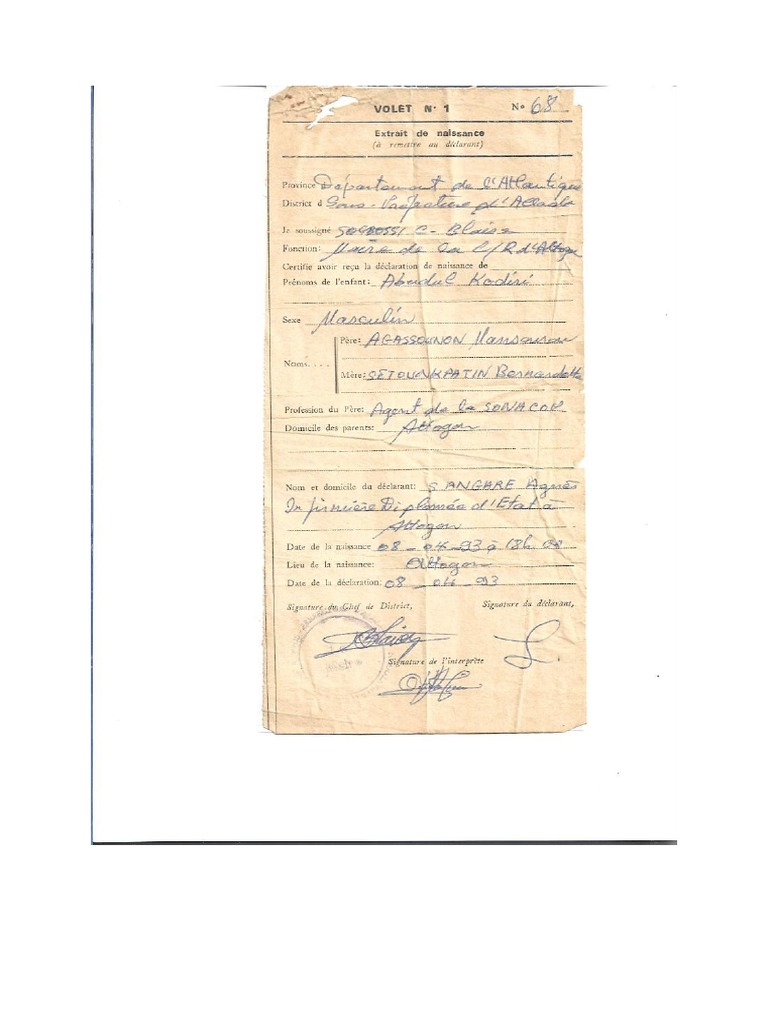 VOLET N° 1 No 68
Extrait de naissance
(à remettre au déclarant)
Province Département de l'Atlantique
District d Sous-Préfecture d'Allada
Je soussigné SOGBOSSI C. Blaise
Fonction: Maire de la C/R d'Attogon
Certifie avoir reçu la déclaration de naissance de
Prénoms de l'enfant: Aboudul Kodiri
Sexe Masculin
Père: AGASSOUNON Mansourou
Noms....
Mère: SETOUNKPATIN Bernardette
Profession du Père: Agent de la SONACOP
Domicile des parents: Attogon
Nom et domicile du déclarant: SANGARE Agnès
Infirmière Diplomée d'Etat à
Attogon
Date de la naissance 08 - 04 - 93 à 18h 00
Lieu de la naissance: Attogon
Date de la déclaration: 08 - 04 - 93
Signature du Chef de District, Signature du déclarant,
Signature de l'interprète